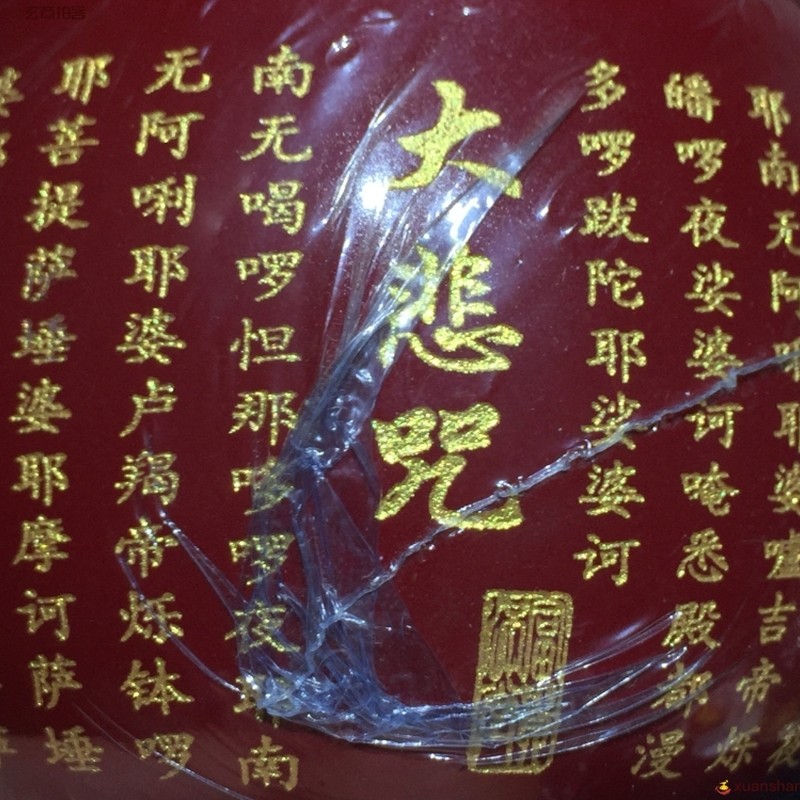 耶南无阿唎耶婆嚧吉帝烁
皤啰夜娑婆诃唵悉殿都漫
多啰跋陀耶娑婆诃
大悲咒
南无喝啰怛那哆啰夜耶南
无阿唎耶婆卢羯帝烁钵啰
耶菩提萨埵婆耶摩诃萨埵
xuanshan